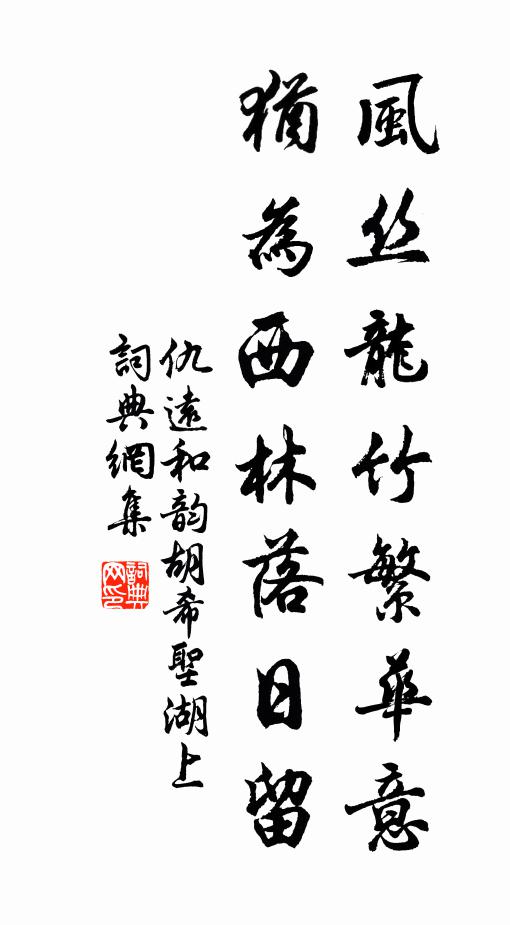 風丝龍竹繁華意
猶為西林落日留
仇遠和韵胡希聖湖上
詞典網集
詞典网印